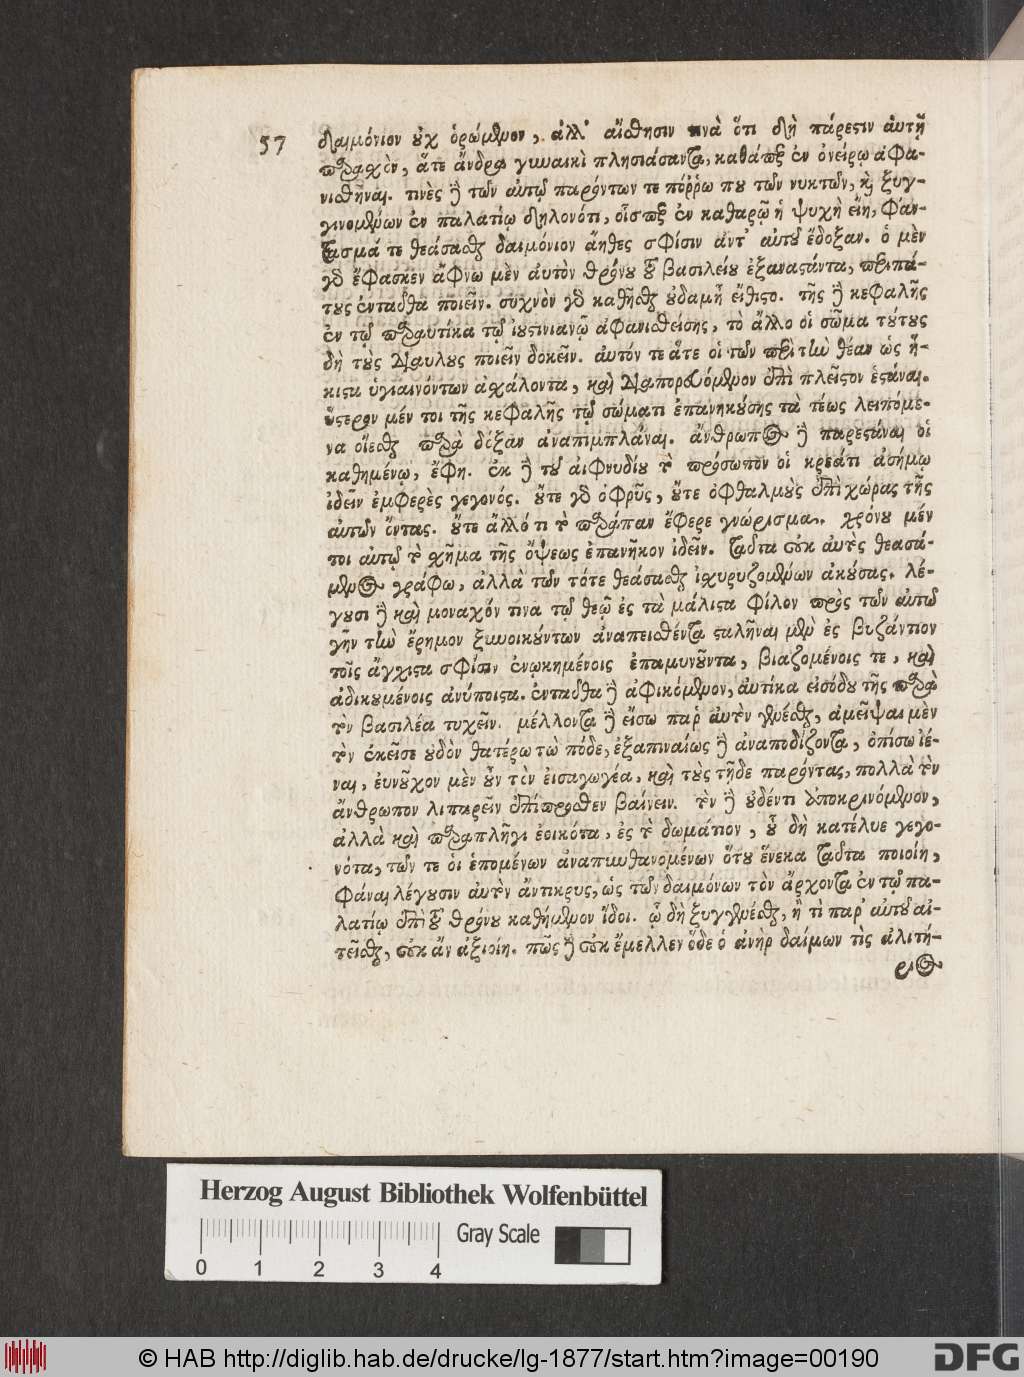 57 δαιμόνιον οὐχ ὁρώμενον, ἀλλ' αἴσθησιν τινὰ ὅτι δὴ πάρεστιν αὐτῇ
παρασχὸν, ἅτε ἄνδρα γυναικὶ πλησιάσαντα, καθάπερ ἐν ὀνείρῳ ἀφα-
νισθῆναι. τινὲς δὲ τῶν αὐτῷ παρόντων τε πόῤῥω που τῶν νυκτῶν, καὶ ξυγ-
γινομένων ἐν παλατίῳ δηλονότι, οἷσπερ ἐν καθαρῷ ἡ ψυχὴ εἴη, φάν-
τασμά τι θεάσασθαι δαιμόνιον ἄηθες σφίσιν ἀντ' αὐτοῦ ἔδοξαν. ὁ μὲν
γὰρ ἔφασκεν ἄφνω μὲν αὐτὸν θρόνου τοῦ βασιλείου ἐξαναστάντα, περιπά-
τους ἐνταῦθα ποιεῖν. συχνὸν γὰρ καθῆσθαι οὐδαμῆ εἴθιστο. τῆς δὲ κεφαλῆς
ἐν τῷ παραυτίκα τῷ ἰουστινιανῷ ἀφανισθείσης, τὸ ἄλλο οἱ σῶμα τούτους
δὴ τοὺς διαύλους ποιεῖν δοκεῖν. αὐτόν τε ἅτε οἱ τῶν περὶ τὴν θέαν ὡς ἥ-
κιστα ὑγιαινόντων ἀσχάλοντα, καὶ διαπορούμενον ἐπὶ πλεῖστον ἑστάναι.
ὕστερον μέν τοι τῆς κεφαλῆς τῷ σώματι ἐπανηκούσης τὰ τέως λειπόμε-
να οἴεσθαι παρὰ δόξαν ἀναπιμπλάναι. ἄνθρωπος δὲ παρεστάναι οἱ
καθημένῳ, ἔφη. ἐκ δὲ τοῦ αἰφνιδίου τὸ πρόσωπόν οἱ κρεάτι ἀσήμῳ
ἰδεῖν ἐμφερὲς γεγονός. οὔτε γὰρ ὀφρῦς, οὔτε ὀφθαλμοὺς ἐπὶ χώρας τῆς
αὐτῶν ὄντας. οὔτε ἄλλό τι τὸ παράπαν ἔφερε γνώρισμα. χρόνου μέν
τοι αὐτῷ τὸ σχῆμα τῆς ὄψεως ἐπανῆκον ἰδεῖν. ταῦτα οὐκ αὐτὸς θεασά-
μενος γράφω, ἀλλὰ τῶν τότε θεάσασθαι ἰσχυριζομένων ἀκούσας. λέ-
γουσι δὲ καὶ μοναχόν τινα τῷ θεῷ ἐς τὰ μάλιστα φίλον πρὸς τῶν αὐτῷ
γῆν τὴν ἔρημον ξυνοικούντων ἀναπεισθέντα σταλῆναι μὲν ἐς βυζάντιον
τοῖς ἄγχιστα σφίσιν ἐνῳκημένοις ἐπαμυνοῦντα, βιαζομένοις τε, καὶ
ἀδικουμένοις ἀνύποιστα. ἐνταῦθα δὲ ἀφικόμενον, αὐτίκα εἰσόδου τῆς παρὰ
τὸν βασιλέα τυχεῖν. μέλλοντα δὲ εἴσω παρ' αὐτὸν γενέσθαι, ἀμεῖψαι μὲν
τὸν ἐκεῖσε οὐδὸν θατέρῳ τὼ πόδε, ἐξαπιναίως δὲ ἀναποδίζοντα, ὀπίσω ἰέ-
ναι, εὐνοῦχον μὲν οὖν τὸν εἰσαγωγέα, καὶ τοὺς τῇδε παρόντας, πολλὰ τὸν
ἄνθρωπον λιπαρεῖν ἐπίπροσθεν βαίνειν. τὸν δὲ οὐδέντι ἀποκρινόμενον,
ἀλλὰ καὶ παραπλῆγι ἐοικότα, ἐς τὸ δωμάτιον, οὗ δὴ κατέλυε γεγο-
νότα, τῶν τε οἱ ἑπομένων ἀναπυνθανομένων ὅτου ἕνεκα ταῦτα ποιοίη,
φάναι λέγουσιν αὐτὸν ἄντικρυς, ὡς τῶν δαιμόνων τὸν ἄρχοντα ἐν τῷ πα-
λατίῳ ἐπὶ τοῦ θρόνου καθήμενον ἴδοι. ᾧ δὴ ξυγγενέσθαι, ἤ τὶ παρ' αὐτοῦ αἰ-
τεῖσθαι, οὐκ ἂν ἀξιοίη. πῶς δὲ οὐκ ἔμελλεν ὅδε ὁ ἀνὴρ δαίμων τὶς ἀλιτή-
ριος
Herzog August Bibliothek Wolfenbüttel
Gray Scale
0 1 2 3 4
© HAB http://diglib.hab.de/drucke/lg-1877/start.htm?image=00190
DFG